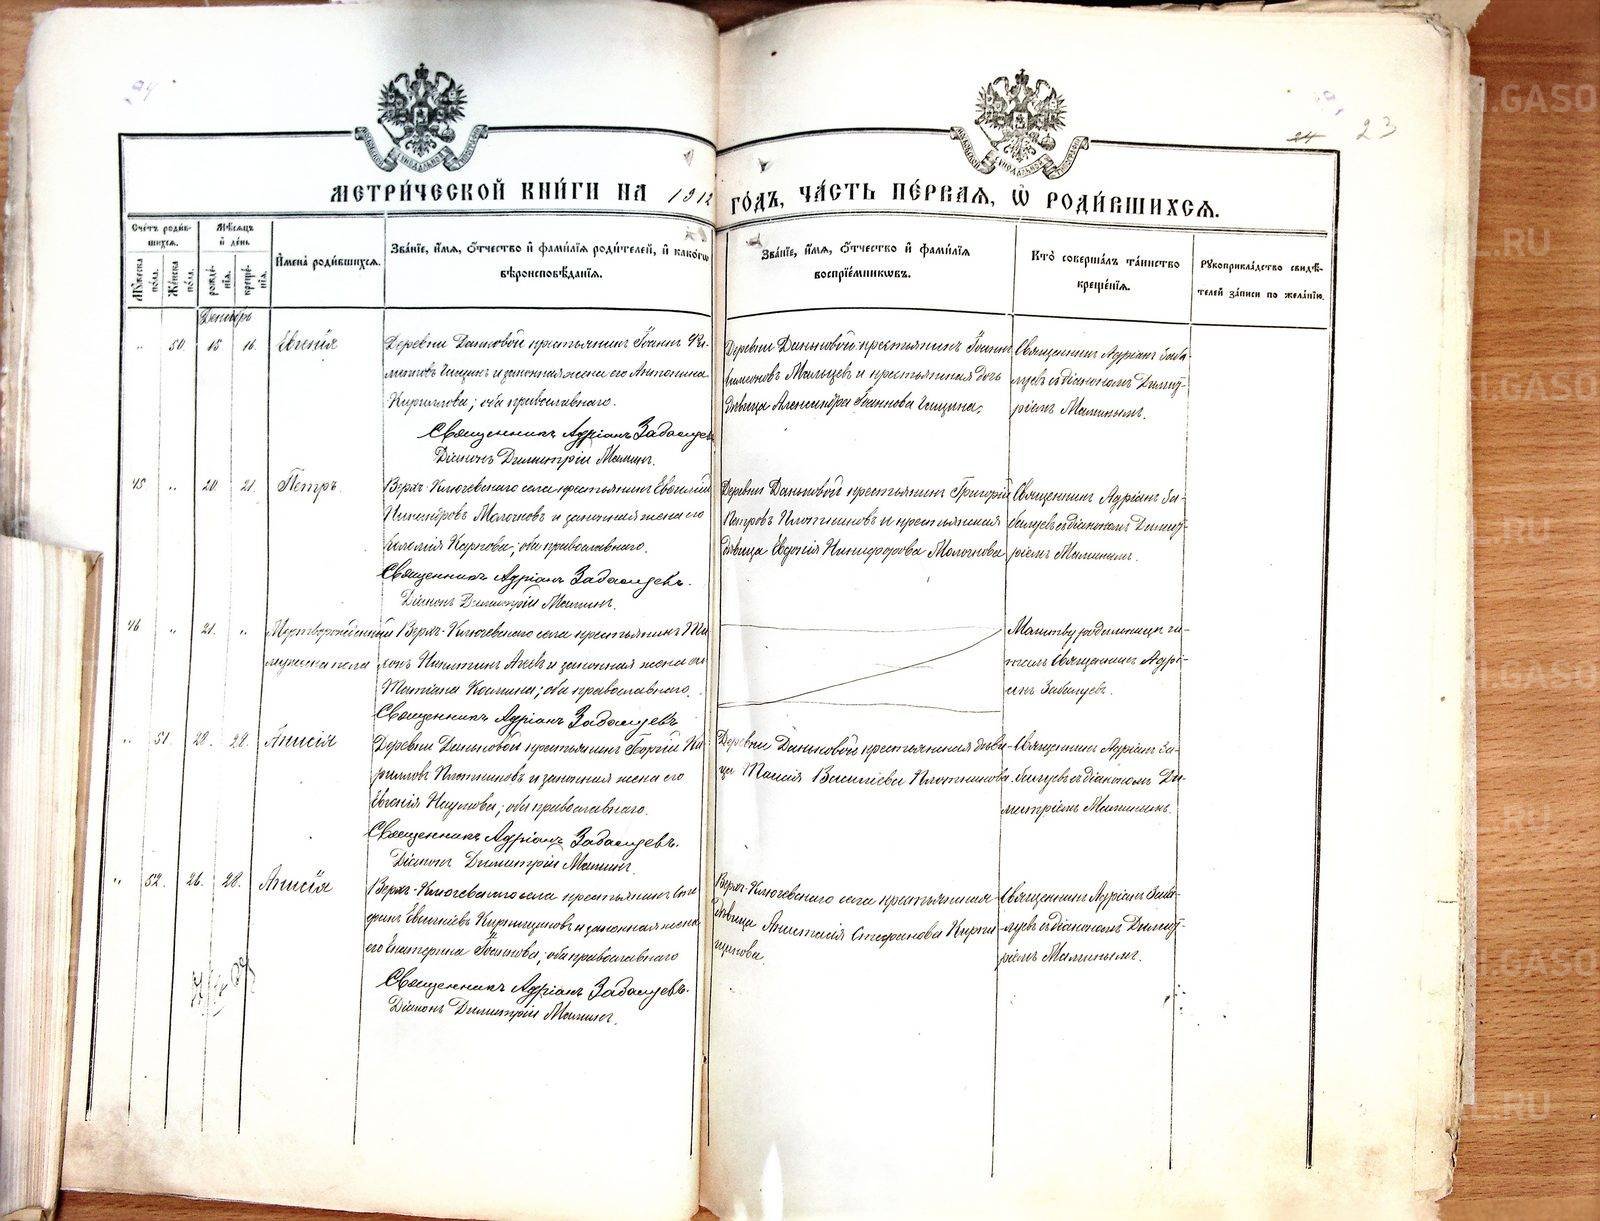 23
МЕТРИ́ЧЕСКОЙ КНИ́ГИ НА 1912 ГО́ДЪ, ЧА́СТЬ ПЕ́РВАЯ, Ѡ҆ РОДИ́ВШИХСЯ.
Сче́тъ роди́в-
шихся.
Му́жеска по́ла.
Же́нска по́ла.
Мѣ́сяцъ
и҆ де́нь
рожде́-
нїя.
креще́-
нїя.
И҆мена̀ роди́вшихся.
Зва́нїе, и҆́мя, ѻ҆́тчество и҆ фами́лїя роди́телей, и҆ како́гѡ
вѣроисповѣ́данїя.
Зва́нїе, и҆́мя, ѻ҆́тчество и҆ фами́лїя
воспрїе́мниковъ.
Кто̀ соверша́лъ та́инство
креще́нїя.
Рукоприкла́дство свидѣ́-
телей за́писи по жела́нїю.
Декабрь
" 50. 15 16. Евгенія
Деревни Даньковой крестьянинъ Іоаннъ
и законная жена его Антонина
Кириллова; оба православнаго.
Священникъ Адріанъ Забалуевъ
Діаконъ Димитрій Маминъ.
Деревни Даньковой крестьянинъ Іоаннъ
Мальцевъ и крестьянская дочь
дѣвица Александра Іоаннова
Священникъ Адріанъ Заба-
луевъ съ діакономъ Димит-
ріемъ Маминымъ.
45 " 20. 21. Петръ.
Верхъ-Ключевскаго села крестьянинъ Евгеній
Никандровъ Молочковъ и законная жена его
Карпова; оба православнаго.
Священникъ Адріанъ Забалуевъ.
Діаконъ Димитрій Маминъ.
Деревни Даньковой крестьянинъ Григорій
Петровъ Плотниковъ и крестьянская
дѣвица Евдокія Никифорова Молочкова
Священникъ Адріанъ За-
балуевъ съ діакономъ Димит-
ріемъ Маминымъ.
46 " 21. " Мертворожденный
мужеска пола
Верхъ-Ключевскаго села крестьянинъ Ти-
хонъ Никитинъ и законная жена его
Татіана Козмина; оба православнаго.
Священникъ Адріанъ Забалуевъ
Молитву родильницѣ чи-
талъ Священникъ Адрі-
анъ Забалуевъ.
" 51. 28. 28. Анисія
Деревни Даньковой крестьянинъ Георгій Ки-
рилловъ Плотниковъ и законная жена его
Евгенія Наумова; оба православнаго.
Священникъ Адріанъ Забалуевъ.
Діаконъ Димитрій Маминъ.
Деревни Даньковой крестьянская дѣви-
ца Таисія Василіева Плотникова.
Священникъ Адріанъ За-
балуевъ съ діакономъ Ди-
митріемъ Маминымъ.
" 52. 26. 28. Анисія
Верхъ-Ключевскаго села крестьянинъ Сте-
фанъ Евгеніевъ Кирпищиковъ и законная жена
его Екатерина Іоаннова; оба православнаго
Священникъ Адріанъ Забалуевъ.
Діаконъ Димитрій Маминъ.
Верхъ-Ключевскаго села крестьянская
дѣвица Анастасія Стефанова Кирпи-
щикова.
Священникъ Адріанъ Заба-
луевъ съ діакономъ Димит-
ріемъ Маминымъ.